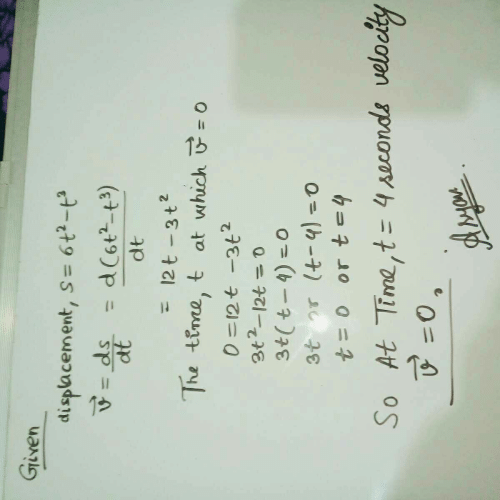 Given
displacement, s = 6t² - t³
v⃗ = ds/dt = d(6t² - t³)/dt
= 12t - 3t²
The time, t at which v⃗ = 0
0 = 12t - 3t²
3t² - 12t = 0
3t(t - 4) = 0
3t or (t - 4) = 0
t = 0 or t = 4
So At Time, t = 4 seconds velocity
v⃗ = 0,